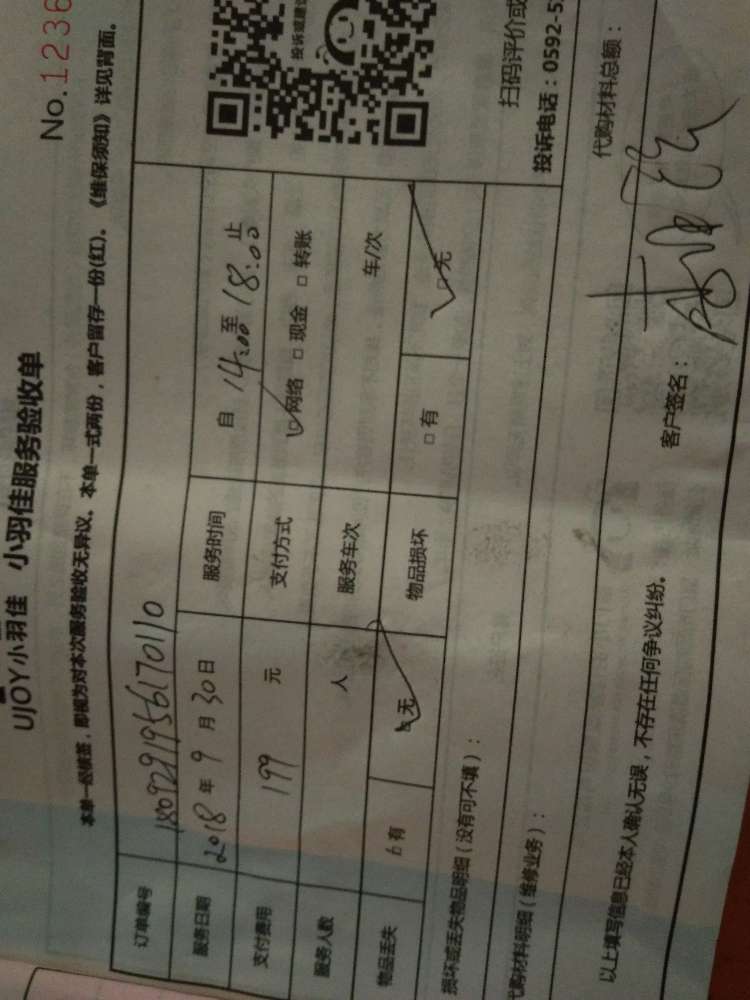 UJOY小羽佳 小羽佳服务验收单
No.1236
本单一经核签，即视为对本次服务验收无异议。本单一式两份，客户留存一份(红)。《维保须知》详见背面。
订单编号 1809291956170110
服务日期 2018年9月30日 服务时间 自14:00至18:00止
支付费用 199元 支付方式 □网络 □现金 □转账
服务人数 人 服务车次 车/次
物品丢失 □有 □无 物品损坏 □有 □无
投诉或建议
扫码评价或
投诉电话：0592-5
损坏或丢失物品明细（没有可不填）：
代购材料明细（维修业务）：
代购材料总额：
以上填写信息已经本人确认无误，不存在任何争议纠纷。 客户签名：